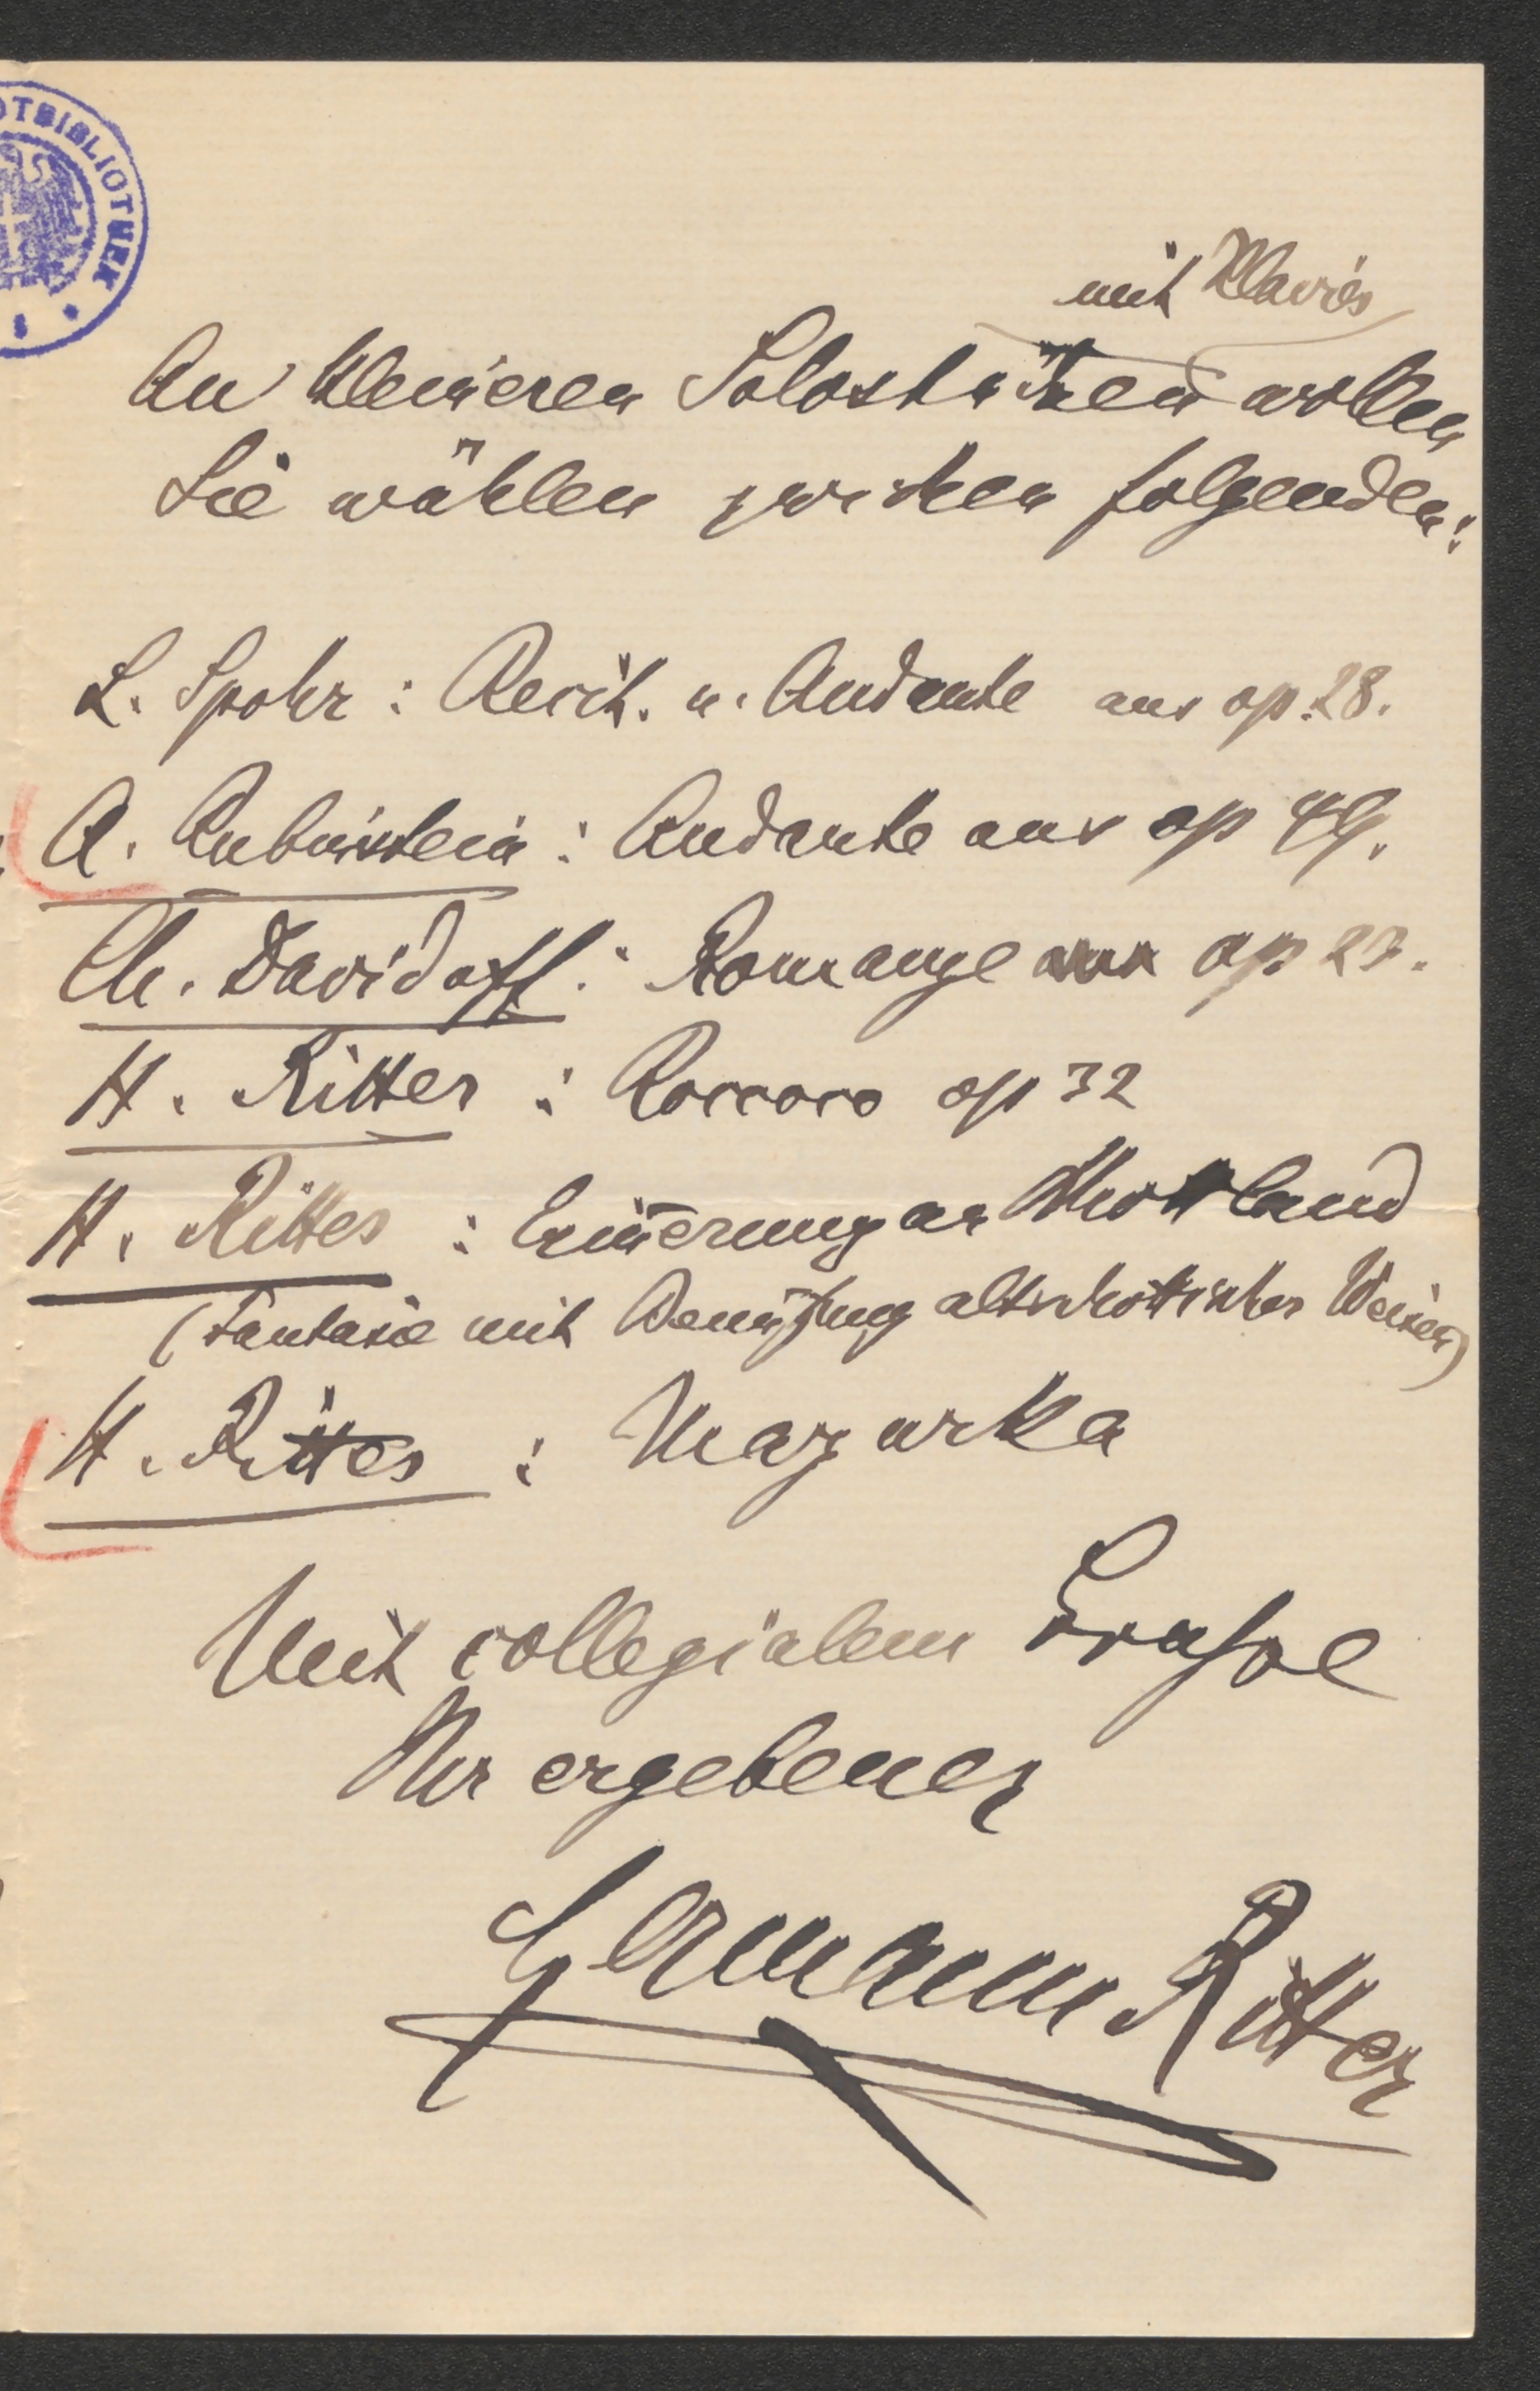 OTBIBLIOTHEK
mit Klavier
An kleineren Solostücken wollen
Sie wählen zwischen folgenden:
L. Spohr : Recit. u. Andante aus op. 28.
A. Rubinstein : Andante aus op 49.
Ch. Davidoff : Romanze op 23.
H. Ritter : Roccoco op 32
H. Ritter : Erinnerung an Schottland
(Fantasie mit Benützung altschottischer Weisen)
H. Ritter : Mazurka
Mit collegialem Grusse
Ihr ergebener
Hermann Ritter